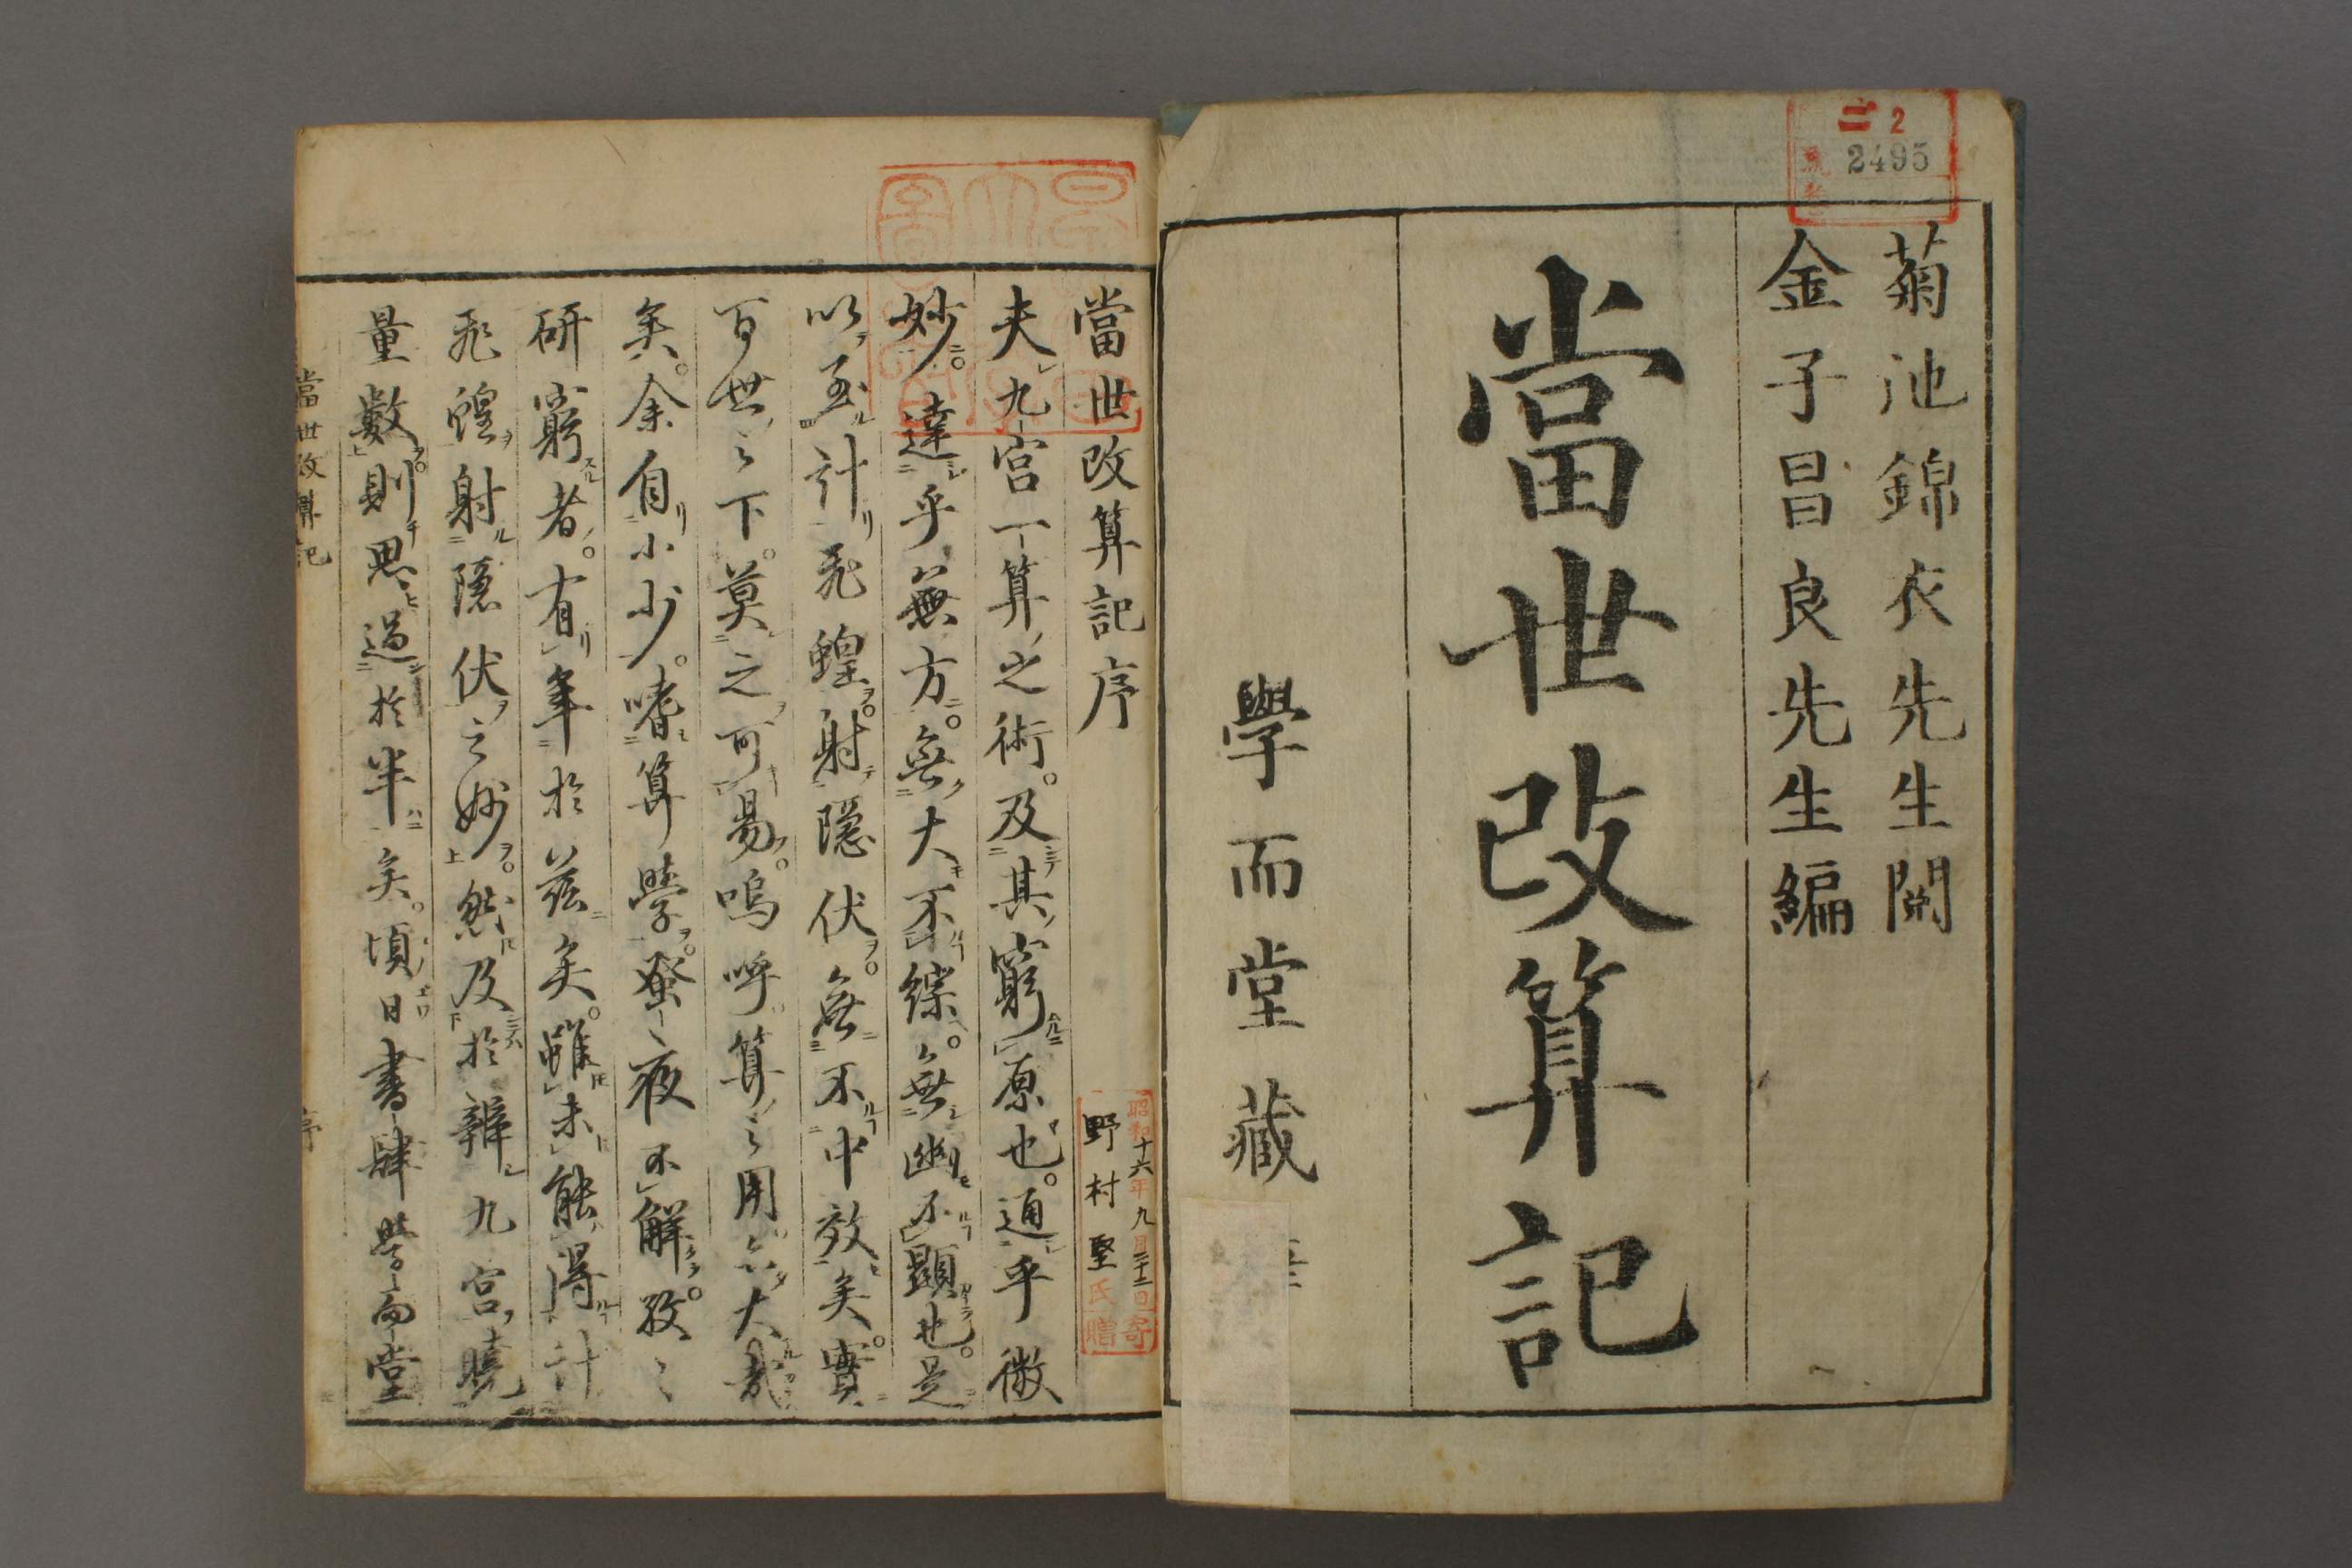 2
2495
菊池錦衣先生閱
金子昌良先生編
當世改算記
學而堂藏
當世改算記序
昭和十六年九月二十二日寄
野村堅氏贈
夫九宮一算之術。及其窮原也。通乎微
妙。達乎無方。無大不綜。無幽不顯也。是
以至計飛蝗射隱伏。無不中效矣。實
百世之下。莫之可易。嗚呼算之用亦大哉
矣。余自小少。嗜算學。蚤夜不解。孜〻
研窮者。有年於茲矣。雖未能得計
飛蝗射隱伏之妙。然及於辨九宮曉
量數。則思過於半矣。頃日書肆學而堂
當世改算記
序